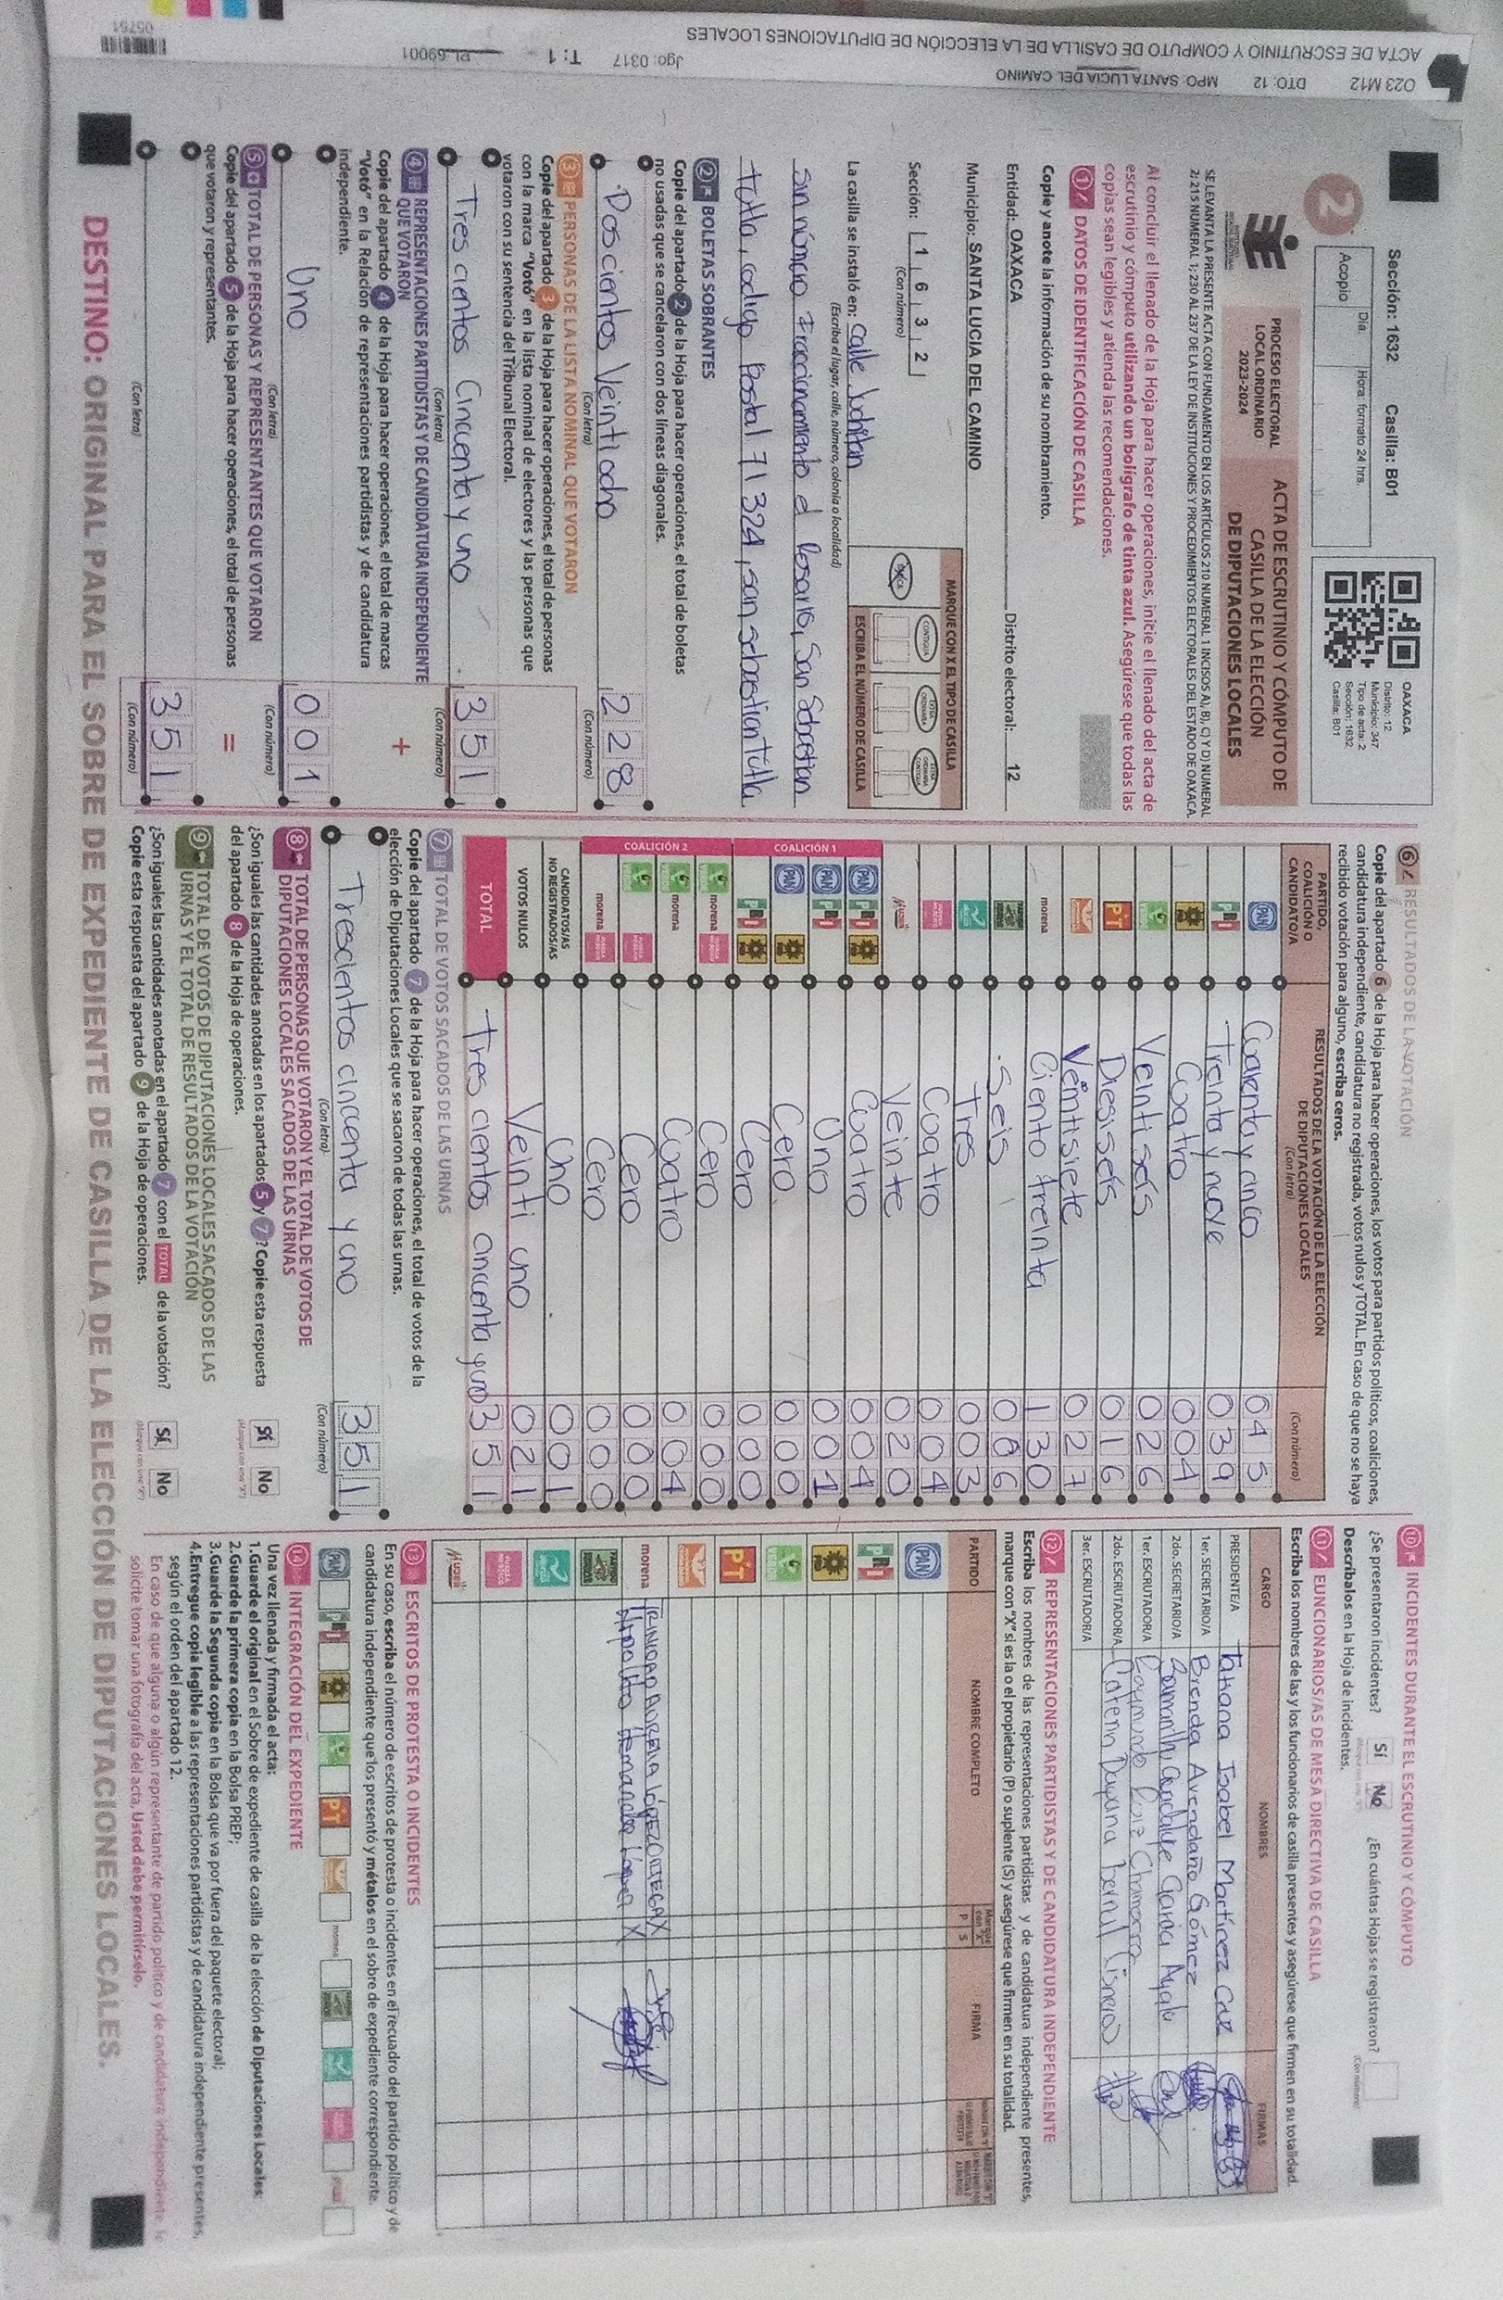 O23 M12 DTO: 12 MPO: SANTA LUCIA DEL CAMINO
ACTA DE ESCRUTINIO Y COMPUTO DE CASILLA DE LA ELECCIÓN DE DIPUTACIONES LOCALES
Jgo: 0317 T: 1 PL 69001
05751
Sección: 1632 Casilla: B01
2
Acopio Día: Hora: formato 24 hrs.
OAXACA
Distrito: 12
Municipio: 347
Tipo de acta: 2
Sección: 1632
Casilla: B01
PROCESO ELECTORAL
LOCAL ORDINARIO
2023-2024
ACTA DE ESCRUTINIO Y CÓMPUTO DE
CASILLA DE LA ELECCIÓN
DE DIPUTACIONES LOCALES
SE LEVANTA LA PRESENTE ACTA CON FUNDAMENTO EN LOS ARTÍCULOS 210 NUMERAL 1 INCISOS A), B), C) Y D) NUMERAL
2; 215 NUMERAL 1; 230 AL 237 DE LA LEY DE INSTITUCIONES Y PROCEDIMIENTOS ELECTORALES DEL ESTADO DE OAXACA.
Al concluir el llenado de la Hoja para hacer operaciones, inicie el llenado del acta de
escrutinio y cómputo utilizando un bolígrafo de tinta azul. Asegúrese que todas las
copias sean legibles y atienda las recomendaciones.
1 DATOS DE IDENTIFICACIÓN DE CASILLA
Copie y anote la información de su nombramiento.
Entidad: OAXACA Distrito electoral: 12
Municipio: SANTA LUCIA DEL CAMINO
Sección: 1 6 3 2
(Con número)
MARQUE CON X EL TIPO DE CASILLA
BÁSICA CONTIGUA EXTRAORDINARIA EXTRAORDINARIA CONTIGUA
ESCRIBA EL NÚMERO DE CASILLA
La casilla se instaló en: Calle Juchitan
(Escriba el lugar, calle, número, colonia o localidad)
sin número Fraccionamiento el Rosario, San Sebastian
tutla, codigo Postal 71324, san sebastian tutla
2 BOLETAS SOBRANTES
Copie del apartado 2 de la Hoja para hacer operaciones, el total de boletas
no usadas que se cancelaron con dos líneas diagonales.
Doscientos Veintiocho 228
(Con letra) (Con número)
3 PERSONAS DE LA LISTA NOMINAL QUE VOTARON
Copie del apartado 3 de la Hoja para hacer operaciones, el total de personas
con la marca "Votó" en la lista nominal de electores y las personas que
votaron con su sentencia del Tribunal Electoral.
Tres cientos Cincuenta y uno 351
(Con letra) (Con número)
4 REPRESENTACIONES PARTIDISTAS Y DE CANDIDATURA INDEPENDIENTE
QUE VOTARON +
Copie del apartado 4 de la Hoja para hacer operaciones, el total de marcas
"Votó" en la Relación de representaciones partidistas y de candidatura
independiente.
Uno 001
(Con letra) (Con número)
5 TOTAL DE PERSONAS Y REPRESENTANTES QUE VOTARON
Copie del apartado 5 de la Hoja para hacer operaciones, el total de personas =
que votaron y representantes.
351
(Con letra) (Con número)
6 RESULTADOS DE LA VOTACIÓN
Copie del apartado 6 de la Hoja para hacer operaciones, los votos para partidos políticos, coaliciones,
candidatura independiente, candidatura no registrada, votos nulos y TOTAL. En caso de que no se haya
recibido votación para alguno, escriba ceros.
PARTIDO, COALICIÓN O CANDIDATO/A RESULTADOS DE LA VOTACIÓN DE LA ELECCIÓN DE DIPUTACIONES LOCALES (Con letra) (Con número)
PAN Cuarenta y cinco 045
PRI Treinta y nueve 039
PRD Cuatro 004
Veinti seis 026
PT Diesiseis 016
Veintisiete 027
morena Ciento treinta 130
Seis 006
Tres 003
Cuatro 004
MUJER Veinte 020
COALICIÓN 1
PAN PRI PRD Cuatro 004
PAN PRI Uno 001
PAN PRD Cero 000
PRI PRD Cero 000
COALICIÓN 2
morena Cero 000
morena Cuatro 004
Cero 000
morena Cero 000
CANDIDATOS/AS NO REGISTRADOS/AS Uno 001
VOTOS NULOS Veinti uno 021
TOTAL Tres cientos cincuenta y uno 351
7 TOTAL DE VOTOS SACADOS DE LAS URNAS
Copie del apartado 7 de la Hoja para hacer operaciones, el total de votos de la
elección de Diputaciones Locales que se sacaron de todas las urnas.
Trescientos cincuenta y uno 351
(Con letra) (Con número)
8 TOTAL DE PERSONAS QUE VOTARON Y EL TOTAL DE VOTOS DE
DIPUTACIONES LOCALES SACADOS DE LAS URNAS
¿Son iguales las cantidades anotadas en los apartados 5 y 7? Copie esta respuesta
del apartado 8 de la Hoja de operaciones.
Sí No
9 TOTAL DE VOTOS DE DIPUTACIONES LOCALES SACADOS DE LAS
URNAS Y EL TOTAL DE RESULTADOS DE LA VOTACIÓN
¿Son iguales las cantidades anotadas en el apartado 7 con el TOTAL de la votación?
Copie esta respuesta del apartado 9 de la Hoja de operaciones.
Sí No
10 INCIDENTES DURANTE EL ESCRUTINIO Y CÓMPUTO
¿Se presentaron incidentes? Sí No ¿En cuántas Hojas se registraron?
(Con número)
Descríbalos en la Hoja de incidentes.
11 FUNCIONARIOS/AS DE MESA DIRECTIVA DE CASILLA
Escriba los nombres de las y los funcionarios de casilla presentes y asegúrese que firmen en su totalidad.
CARGO NOMBRES FIRMAS
PRESIDENTE/A Tatiana Isabel Martínez Cruz
1er. SECRETARIO/A Brenda Avendaño Gómez
2do. SECRETARIO/A Samantha Guadalupe Garcia Ayala
1er. ESCRUTADOR/A Raymundo Ruiz Chamorro
2do. ESCRUTADOR/A Caterin Dayana Bernal Cisneros
3er. ESCRUTADOR/A
12 REPRESENTACIONES PARTIDISTAS Y DE CANDIDATURA INDEPENDIENTE
Escriba los nombres de las representaciones partidistas y de candidatura independiente presentes,
marque con "X" si es la o el propietario (P) o suplente (S) y asegúrese que firmen en su totalidad.
PARTIDO NOMBRE COMPLETO P S FIRMA
PAN
PRI
PRD
PT
morena TRINIDAD NOREMIA LÓPEZ ORTEGA X
Hipolito Hernandez López X
MUJER
13 ESCRITOS DE PROTESTA O INCIDENTES
En su caso, escriba el número de escritos de protesta o incidentes en el recuadro del partido político y de
candidatura independiente que los presentó y métalos en el sobre de expediente correspondiente.
PAN PRI PRD PT morena
14 INTEGRACIÓN DEL EXPEDIENTE
Una vez llenada y firmada el acta:
1.Guarde el original en el Sobre de expediente de casilla de la elección de Diputaciones Locales;
2.Guarde la primera copia en la Bolsa PREP;
3.Guarde la Segunda copia en la Bolsa que va por fuera del paquete electoral;
4.Entregue copia legible a las representaciones partidistas y de candidatura independiente presentes,
según el orden del apartado 12.
En caso de que alguna o algún representante de partido político y de candidatura independiente, le
solicite tomar una fotografía del acta, Usted debe permitírselo.
DESTINO: ORIGINAL PARA EL SOBRE DE EXPEDIENTE DE CASILLA DE LA ELECCIÓN DE DIPUTACIONES LOCALES.